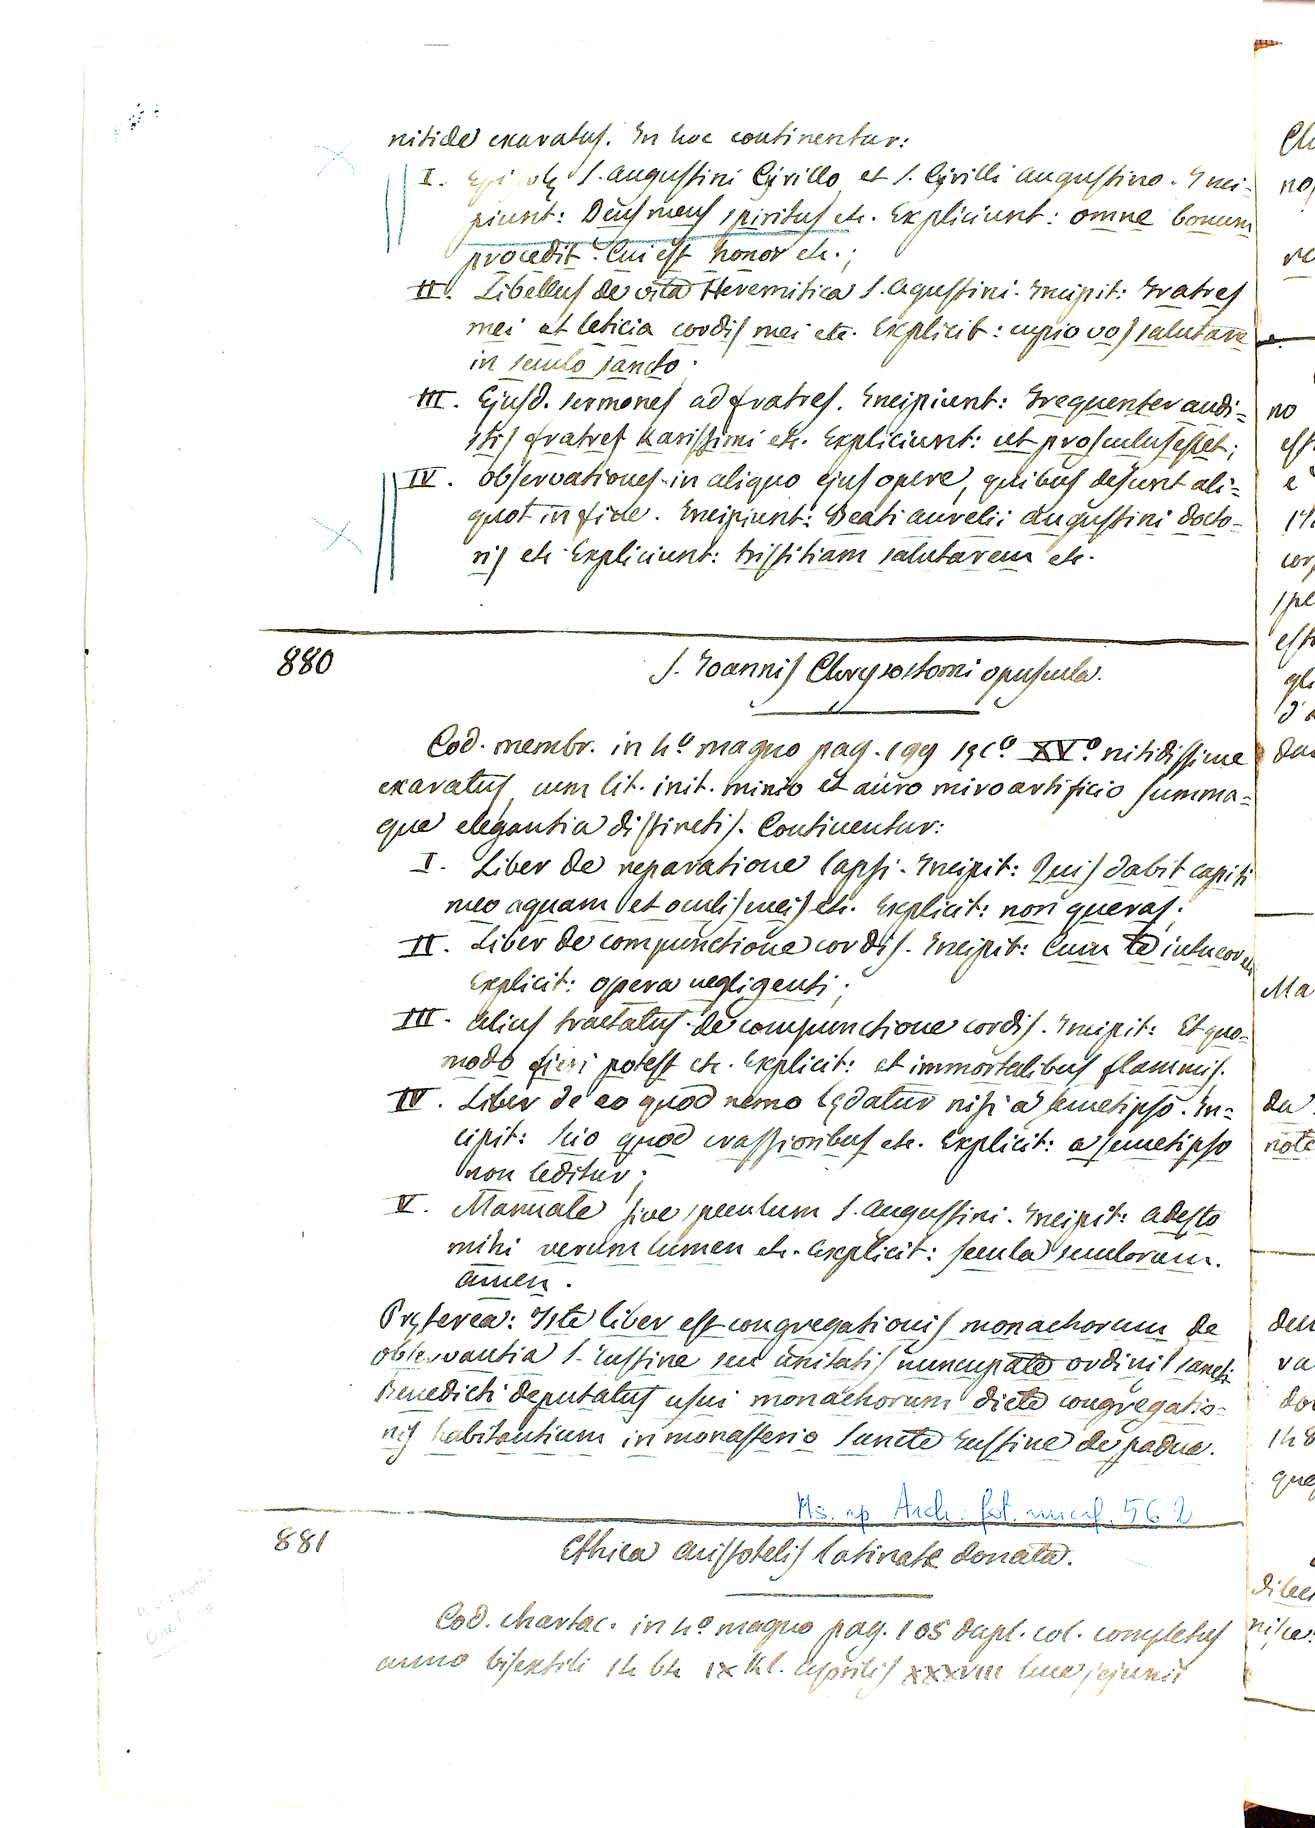 nitide exaratus. In hoc continentur:
I. Epistolę S. Augustini Cyrillo et S. Cyrilli Augustino. Inci-
piunt: Deus meus spiritus etc. Expliciunt: omne bonum
procedit. Cui est honor etc.;
II. Libellus de vita Heremitica S. Agustini. Incipit: Fratres
mei et leticia cordis mei etc. Explicit: cupio vos salutare
in seculo sancto;
III. Ejusd. sermones ad fratres. Incipiunt: Frequenter audi-
stis fratres karissimi etc. Expliciunt: ut prosculus esset;
IV. Observationes in aliquo ejus opere, quibus desunt ali-
quot in fine. Incipiunt: Beati Aurelii Augustini docto-
ris etc. Expliciunt: tristitiam salutarem etc.
880
S. Ioannis Chrysostomi opuscula.
Cod. membr. in 4º magno pag. 199 sęcº XVº nitidissime
exaratus, cum lit. init. minio et auro miro artificio summa-
que elegantia distinctis. Continentur:
I. Liber de reparatione lapsi. Incipit: Quis dabit capiti
meo aquam et oculis meis etc. Explicit: non queras;
II. Liber de compunctione cordis. Incipit: Cum te intueor etc.
Explicit: opera negligenti;
III. Alius tractatus de compunctione cordis. Incipit: Et quo-
modo fieri potest etc. Explicit: et immortalibus flammis.
IV. Liber de eo quod nemo lędatur nisi a semetipso. In-
cipit: Scio quod crassioribus etc. Explicit: a semetipso
non leditur;
V. Manuale sive speculum S. Augustini. Incipit: adesto
mihi verum lumen etc. Explicit: secula seculorum.
amen.
Pręterea: Iste liber est congregationis monachorum de
observantia S. Iustine seu unitatis nuncupate ordinis sancti
Benedicti deputatus usui monachorum dicte congregatio-
nis habitantium in monasterio Sancte Iustine de padua.
Ms. ap Arch. fot. 562
881
Ethica Aristotelis latinate donata.
Cod. chartac. in 4º magno pag. 105 dupl. col. completus
anno bisextili 1464 IX Kl. Aprilis XXXVIII luce jejunii